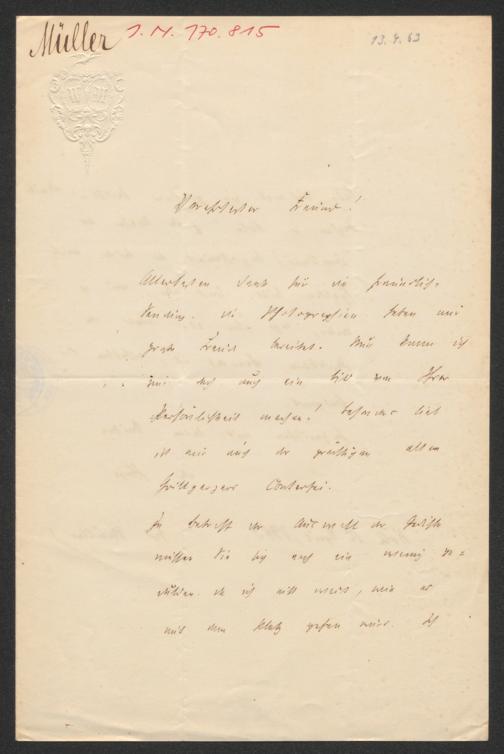 Müller
I. N. 170.815
13. 4. 63
Verehrtester Freund!
Allerbesten Dank für die freundliche
Sendung. Die Photographien haben mir
große Freude bereitet. Nun kann ich
mir doch auch ein Bild von Ihrer
Persönlichkeit machen! Besonders lieb
ist mir auch der prächtigen alten
Grillparzers Conterfei.
In Betreff der Auswahl der Gedichte
müssen Sie sich noch ein wenig ge=
dulden, da ich nicht weiß, wie es
mit dem Platz gehen wird. Ich